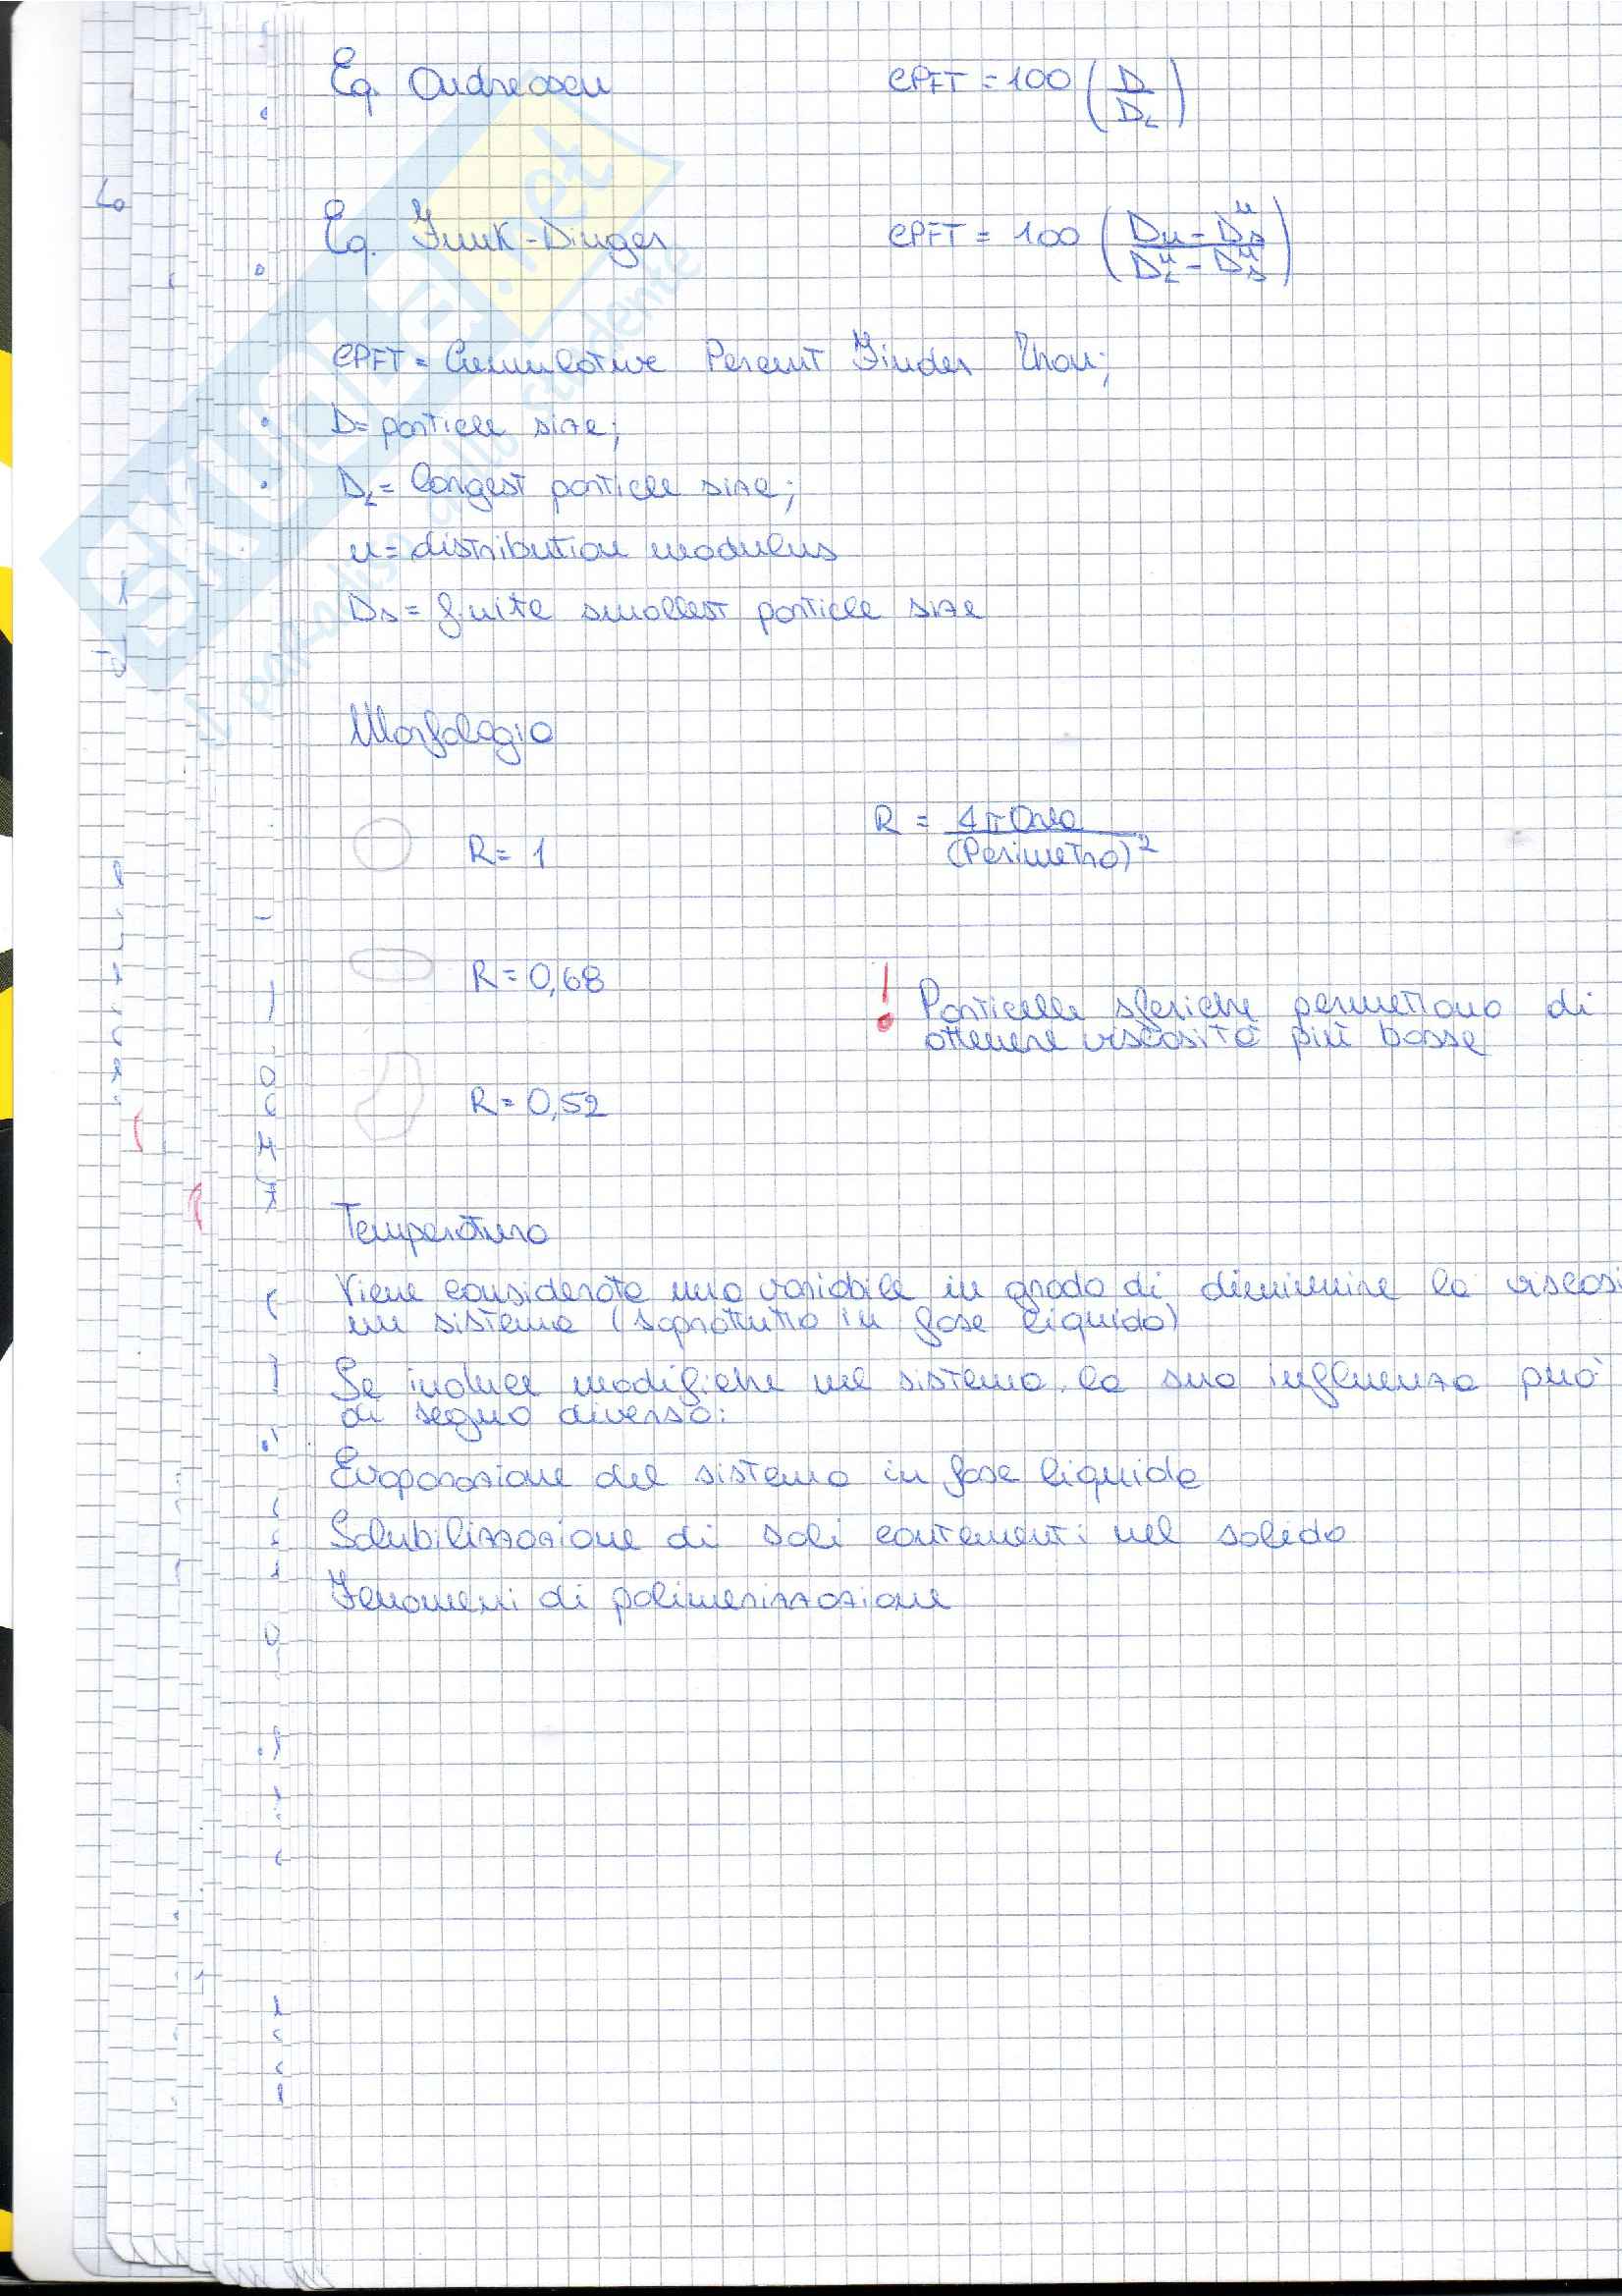 Eq. Andreasen CPFT = 100 (D/D_L)
Eq. Funk-Dinger CPFT = 100 (Dn - D_s^n / D_L^n - D_s^n)
CPFT = Cumulative Percent Finder Than;
D = particle size;
D_L = largest particle size;
n = distribution modulus
D_s = finite smallest particle size
Morfologia
R = 4π Area / (Perimetro)²
R = 1
R = 0,68
! Particelle sferiche permettono di
ottenere viscosità più basse
R = 0,52
Temperatura
Viene considerata una variabile in grado di diminuire la viscosi
un sistema (soprattutto in fase liquida)
Se induce modifiche nel sistema, la sua influenza può
di segno diverso:
Evaporazione del sistema in fase liquida
Solubilizzazione di sali contenenti nel solido
Fenomeni di polimerizzazione
SKUOLA.net
il paradiso dello studente